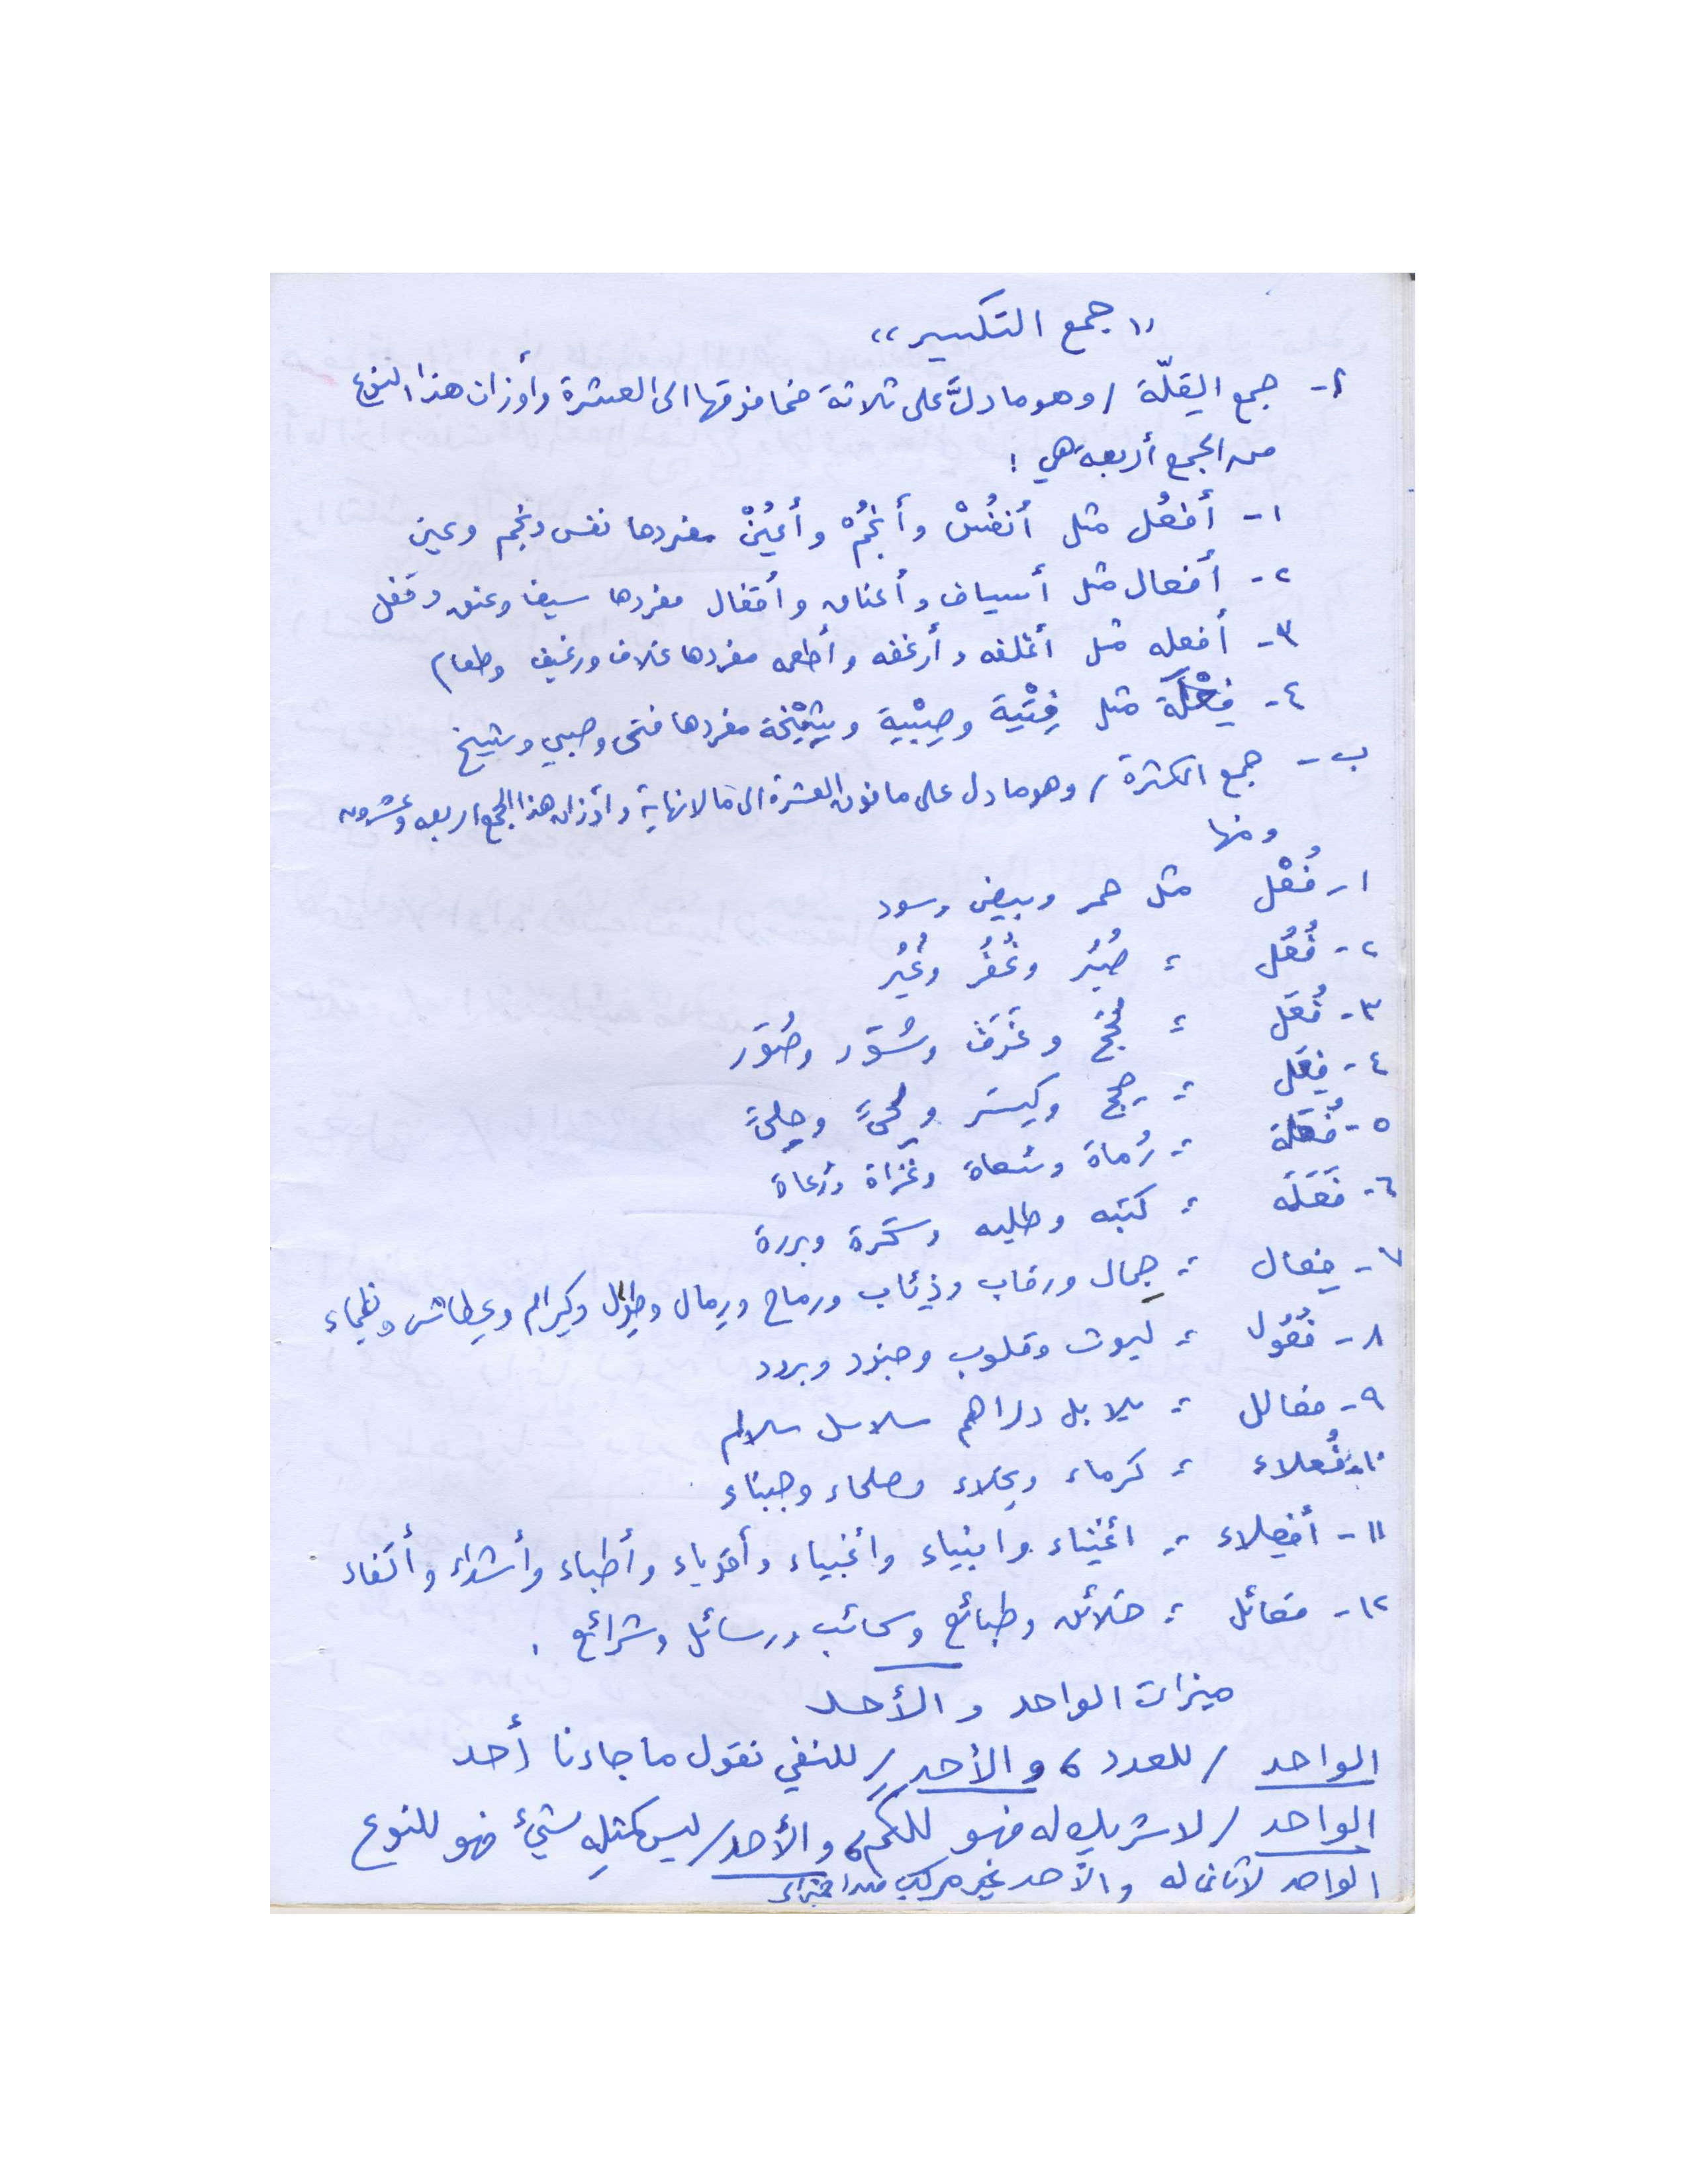 "جمع التكسير"
أ- جمع القِلّة / وهو ما دلَّ على ثلاثة فما فوقها الى العشرة وأوزان هذا النوع
من الجمع أربعة هي :
١- أَفعُل مثل أَنفُسْ وأَنجُمْ وأَعيُنْ مفردها نفس ونجم وعين
٢- أَفعال مثل أسياف وأعناق وأقفال مفردها سيف وعنق وقفل
٣- أفعله مثل أغلفه وأرغفه وأطعمه مفردها غلاف ورغيف وطعام
٤- فِعْلَة مثل فِتْية وصِبْية وشِيْخة مفردها فتى وصبي وشيخ
ب- جمع الكثرة / وهو ما دل على ما فوق العشرة الى ما لا نهاية وأوزان هذا الجمع اربعه وعشرون
ومنها
١- فُعْل مثل حمر وبيض وسود
٢- فُعُل ؛ صُبُر وغُفُر وغُيُر
٣- فُعَل ؛ حُجَج وغُرَف وسُوَر وصُوَر
٤- فِعَل ؛ حِجج وكِسَر ولِحىً وحِلىً
٥- فُعَلة ؛ رُماة وسُعاة وغُزاة ورُعاة
٦- فَعَلَه ؛ كتبه وطلبه وسَحَرة وبررة
٧- فِعال ؛ جِمال ورقاب وذِئاب ورماح ورِمال وطِوال وكِرام وعِطاش وظِماء
٨- فُعُول ؛ ليوث وقلوب وجنود وبرود
٩- فعالل ؛ بلابل دراهم سلاسل سلالم
١٠- فُعلاء ؛ كرماء وبخلاء وصلحاء وجبناء
١١- أفعِلاء ؛ اغنياء وانبياء واغبياء وأقوياء وأطباء وأشداء وأكفاء
١٢- فعائل ؛ خلائق وطبائع وسحائب ورسائل وشرائع .
ميزات الواحد والأحد
الواحد / للعدد ، والأحد / للنفي نقول ما جاءنا أحد
الواحد / لا شريك له فهو للكم ، والأحد / ليس كمثلِه شيءٌ فهو للنوع
الواحد لا ثاني له والأحد غير مركب من اجزاء